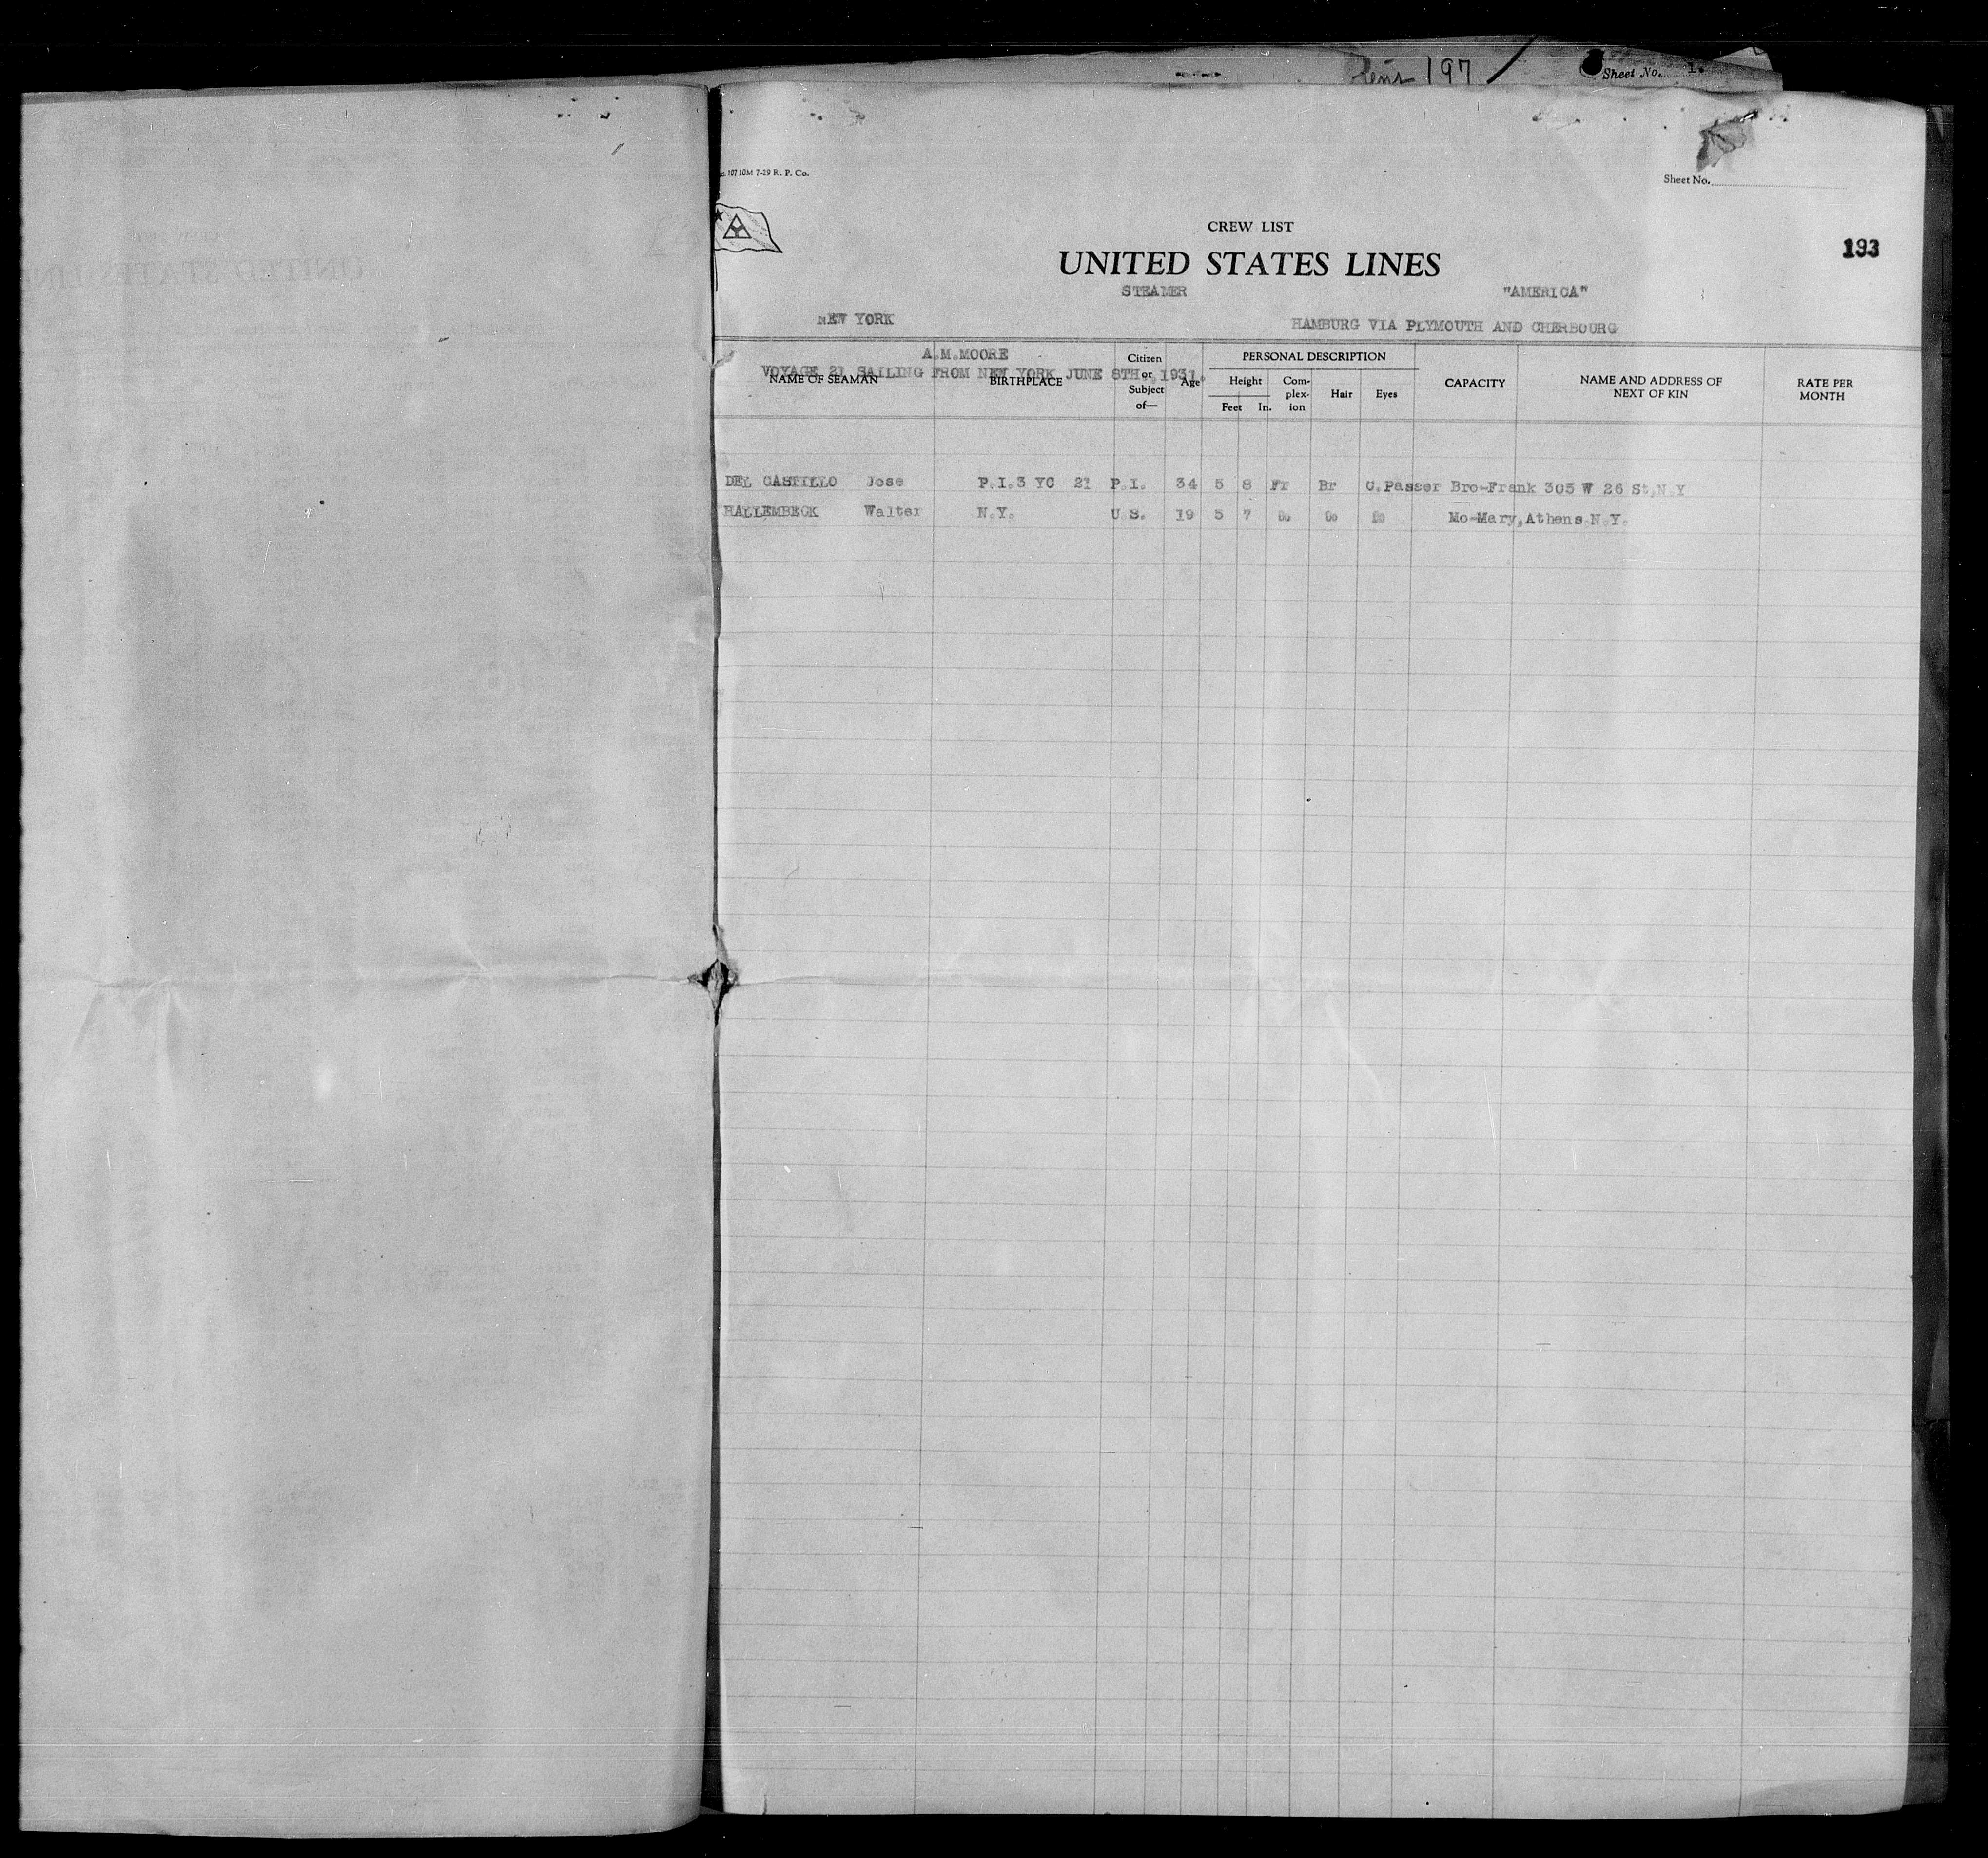 197 /
Sheet No. 1.
107 10M 7-29 R. P. Co.
Sheet No.
CREW LIST
193
UNITED STATES LINES
STEAMER "AMERICA"
NEW YORK HAMBURG VIA PLYMOUTH AND CHERBOURG
A.M.MOORE
VOYAGE 21 SAILING FROM NEW YORK JUNE 8TH.,1931.
NAME OF SEAMAN BIRTHPLACE Citizen or Subject of— Age PERSONAL DESCRIPTION Height Feet In. Com-plex-ion Hair Eyes CAPACITY NAME AND ADDRESS OF NEXT OF KIN RATE PER MONTH
DEL CASTILLO Jose P.I.3 YC 21 P.I. 34 5 8 Fr Br C.Passer Bro-Frank 305 W 26 St,N.Y
HALLEMBECK Walter N.Y. U.S. 19 5 7 Do Do Do Mo-Mary,Athens N.Y.